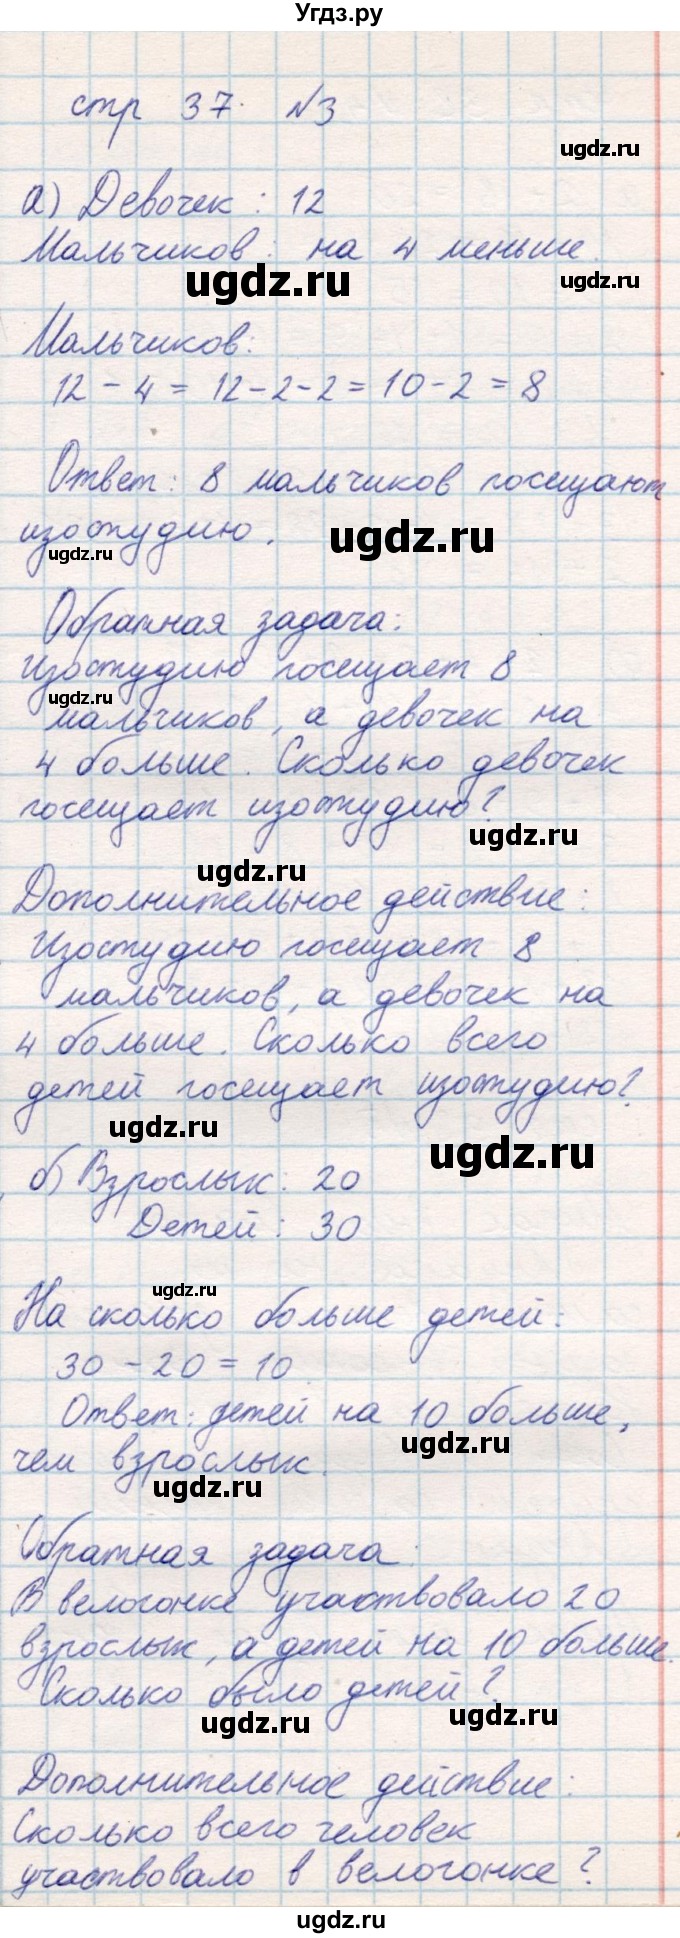 Угдз.ру
стр 37. №3
ugdz.ru
а) Девочек: 12
Мальчиков: на 4 меньше.
ugdz.ru
ugdz.ru
Мальчиков:
12 - 4 = 12-2-2 = 10-2 = 8
Ответ: 8 мальчиков посещают
изостудию.
ugdz.ru
ugdz.ru
Обратная задача:
Изостудию посещает 8
ugdz.ru
мальчиков, а девочек на
4 больше. Сколько девочек
посещает изостудию?
ugdz.ru
ugdz.ru
Дополнительное действие:
Изостудию посещает 8
мальчиков, а девочек на
4 больше. Сколько всего
детей посещает изостудию?
ugdz.ru
ugdz.ru
б) Взрослых: 20
Детей: 30
ugdz.ru
На сколько больше детей:
30 - 20 = 10
Ответ: детей на 10 больше,
ugdz.ru
чем взрослых.
ugdz.ru
Обратная задача:
В велогонке участвовало 20
взрослых, а детей на 10 больше.
Сколько было детей?
ugdz.ru
ugdz.ru
Дополнительное действие:
Сколько всего человек
участвовало в велогонке?
ugdz.ru